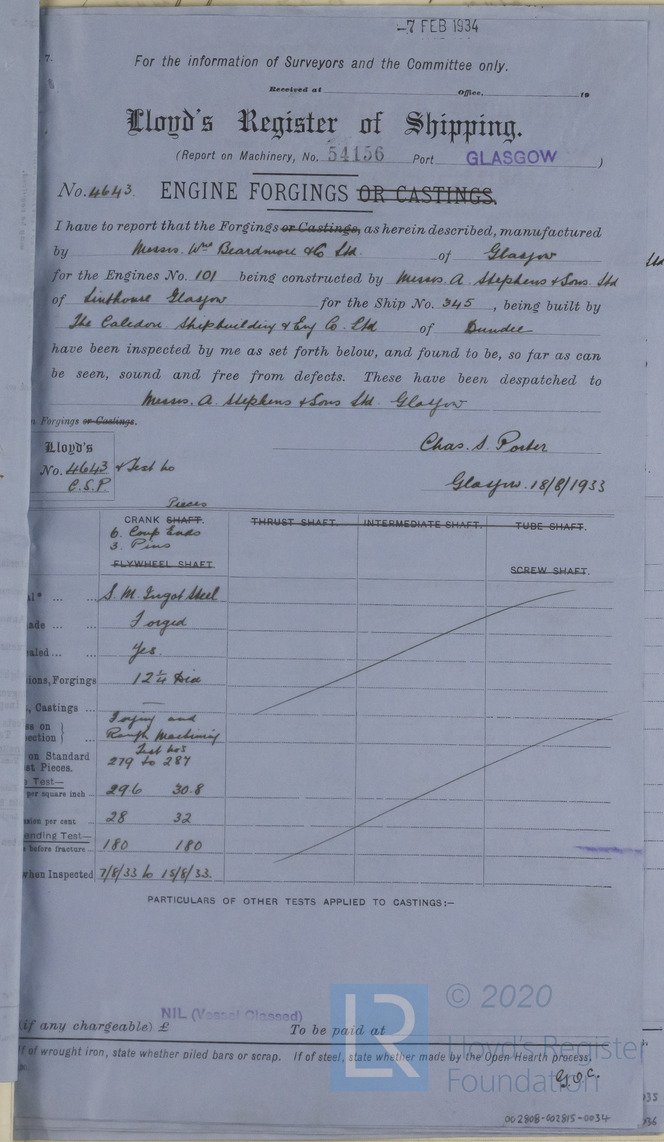 -7 FEB 1934
7.
For the information of Surveyors and the Committee only.
Received at Office, 19
Lloyd's Register of Shipping.
(Report on Machinery, No. 54156 Port GLASGOW )
No. 4643. ENGINE FORGINGS OR CASTINGS.
I have to report that the Forgings or Castings, as herein described, manufactured
by Messrs. Wm Beardmore & Co Ltd. of Glasgow
for the Engines No. 101 being constructed by Messrs A. Stephens & Sons. Ltd
of Linthouse Glasgow for the Ship No. 345, being built by
The Caledon Shipbuilding & Eng Co. Ltd of Dundee
have been inspected by me as set forth below, and found to be, so far as can
be seen, sound and free from defects. These have been despatched to
Messrs. A. Stephens & Sons Ltd. Glasgow
Forgings or Castings.
Lloyd's
No. 4643 & Test No
C.S.P.
Chas. S. Porter
Glasgow. 18/8/1933
Pieces
CRANK SHAFT. THRUST SHAFT. INTERMEDIATE SHAFT. TUBE SHAFT.
6. Coup Ends
3. Pins
FLYWHEEL SHAFT SCREW SHAFT.
S. M. Ingot Steel
ade ... Forged
aled ... Yes.
ions, Forgings 12¼ Dia
, Castings ... —
ss on Forging and
ection Rough Machining
on Standard Test Nos
st Pieces. 279 to 287
Test—
per square inch 29.6 30.8
sion per cent 28 32
ending Test—
before fracture 180 180
when Inspected 7/8/33 to 15/8/33.
PARTICULARS OF OTHER TESTS APPLIED TO CASTINGS:–
NIL (Vessel Classed)
if any chargeable) £ To be paid at
If of wrought iron, state whether piled bars or scrap. If of steel, state whether made by the Open Hearth process.
LR © 2020
Lloyd's Register
Foundation
002808-002815-0034